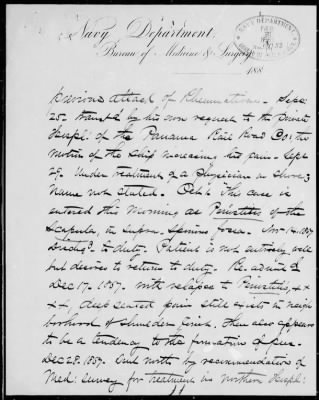 Navy Department,
Bureau of Medicine & Surgery
188
NAVY DEPARTMENT
previous attack of Rheumatism. Sept.
25. transf'd by his own request to the private
Hospl: of the Panama Rail Road Co: the
motion of the Ship increasing his pain. Sept
29. Under treatment of a Physician on shore;
Name not stated. Oct. 1. This case is
entered this morning as Periostitis of the
Scapula, in Supra-Spinous fossa. Nov. 14. 1857
Disch'd to duty. Patient is not entirely well
but desires to return to duty. Re-admit'd
Dec 17. 1857. with relapse to Periostitis, x x
x x, deep seated pain still exists in neigh
borhood of shoulder joint. There also appears
to be a tendency to the formation of pus.
Dec 28. 1857. Sent north by recommendation of
Med: Survey for treatment in Northern Hospl: